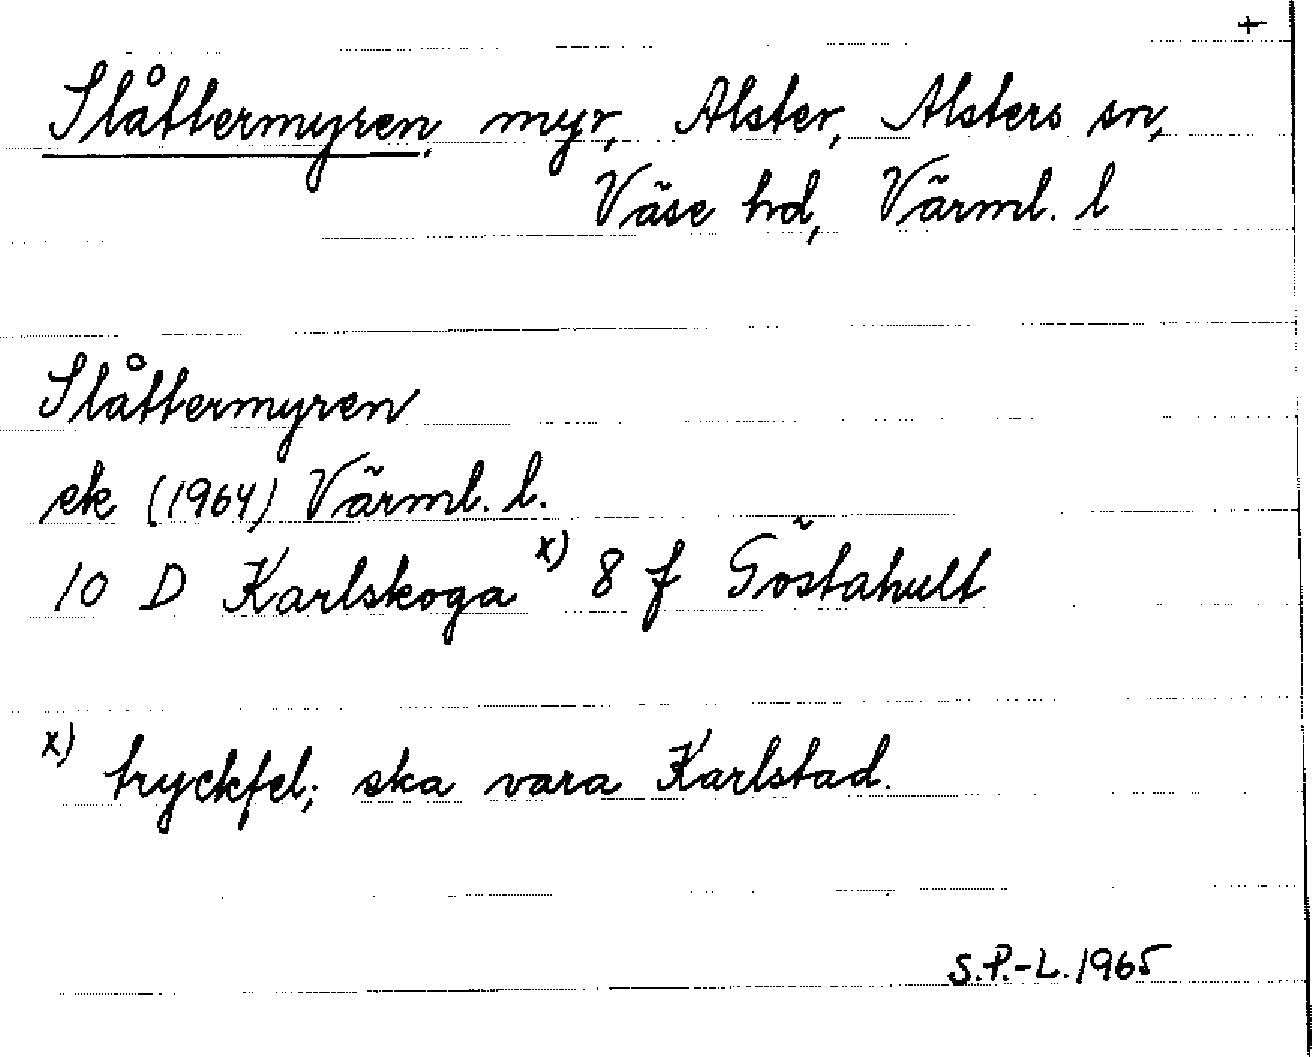 +
Slåttermyren, myr, Alster, Alsters sn,
Väse hd, Värml. l
Slåttermyren
ek (1964) Värml. l.
10 D Karlskoga x) 8 f Göstahult
x) tryckfel; ska vara Karlstad.
S.P.-L. 1965